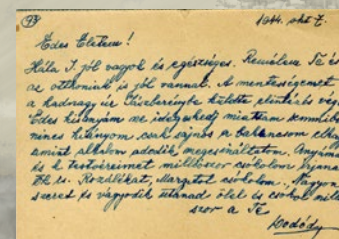 93
1944. okt 7.
Édes Életem!
Hála I. jól vagyok és egészséges. Remélem Te és
az otthoniak is jól vannak. A mentességemet
a hadnagy úr Jászberénybe küldte végett
Édes kisanyám ne idegeskedj miattam semmiben
nincs hiányom csak sajnos a bakkancsom
amint alkalom adódik megcsináltatom. Anyámat
és k. testvéreimet milliószor csókolom
Rozálkát, Margitot csókolom. Nagyon
szeret és vágyódik utánad ölel és csókol
szor a Te